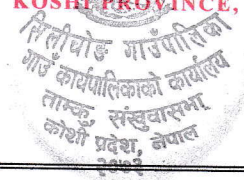 KOSHI PROVINCE,
सिलीचोङ गाउँपालिका
गाउँ कार्यपालिकाको कार्यालय
ताम्कु, संखुवासभा
कोशी प्रदेश, नेपाल
२०७३